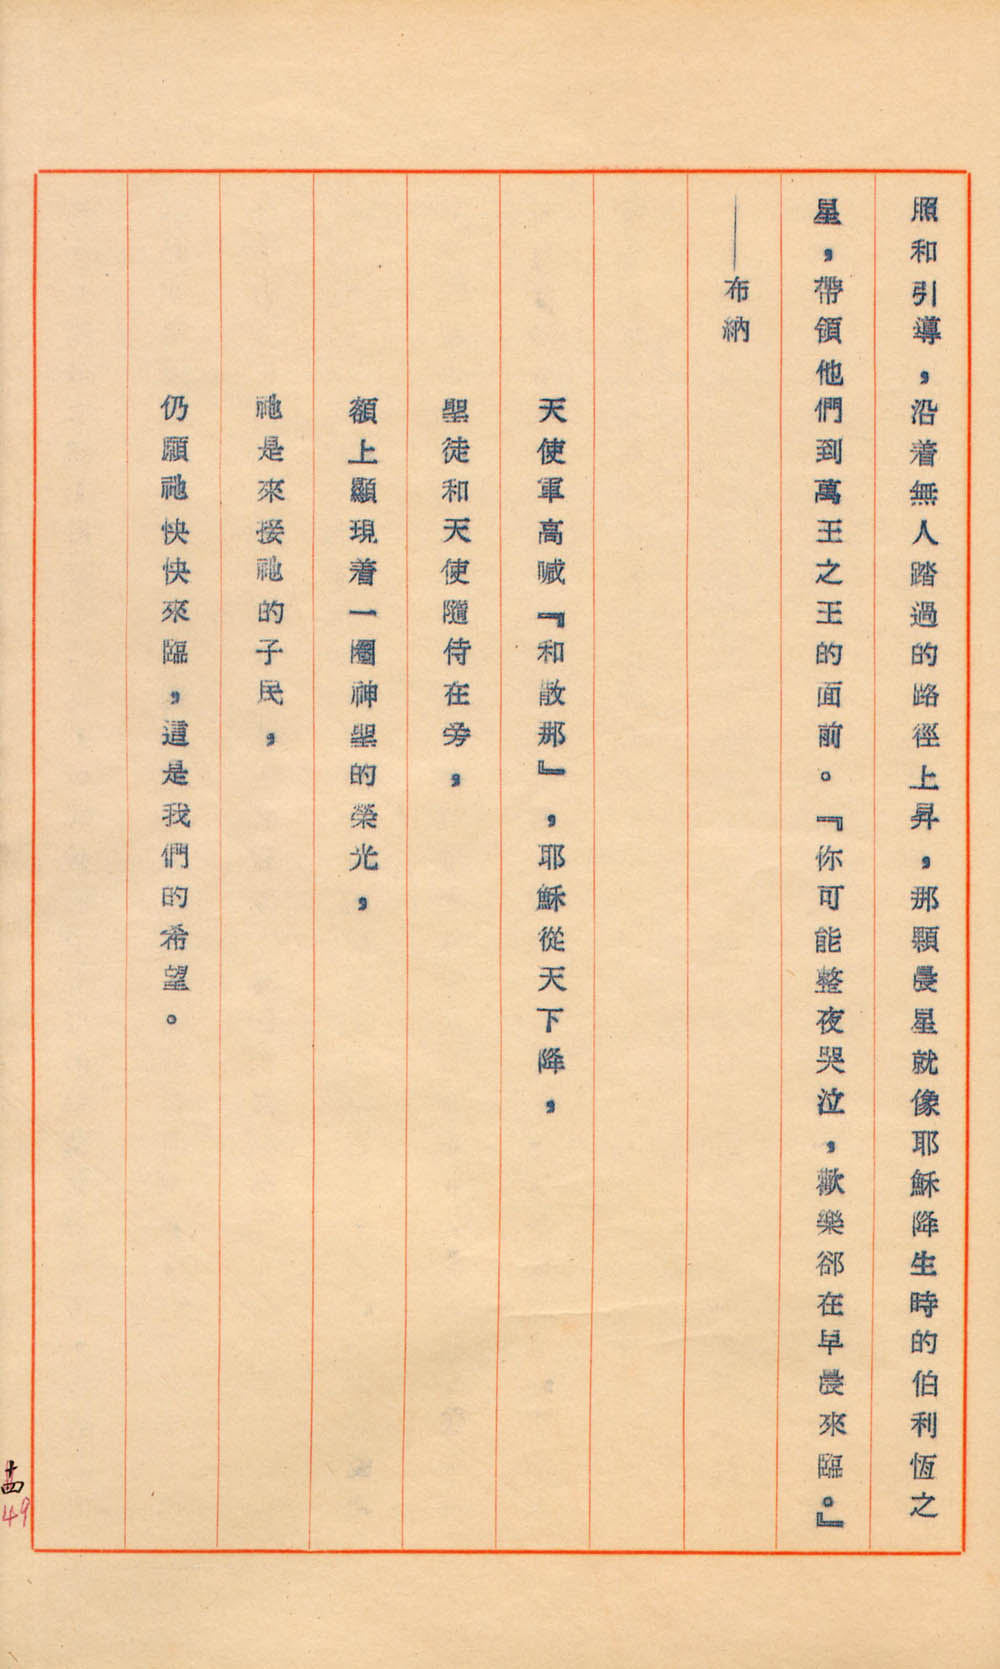 照和引導，沿着無人踏過的路徑上昇，那顆晨星就像耶穌降生時的伯利恆之
星，帶領他們到萬王之王的面前。『你可能整夜哭泣，歡樂卻在早晨來臨。』
——布納
天使軍高喊『和散那』，耶穌從天下降，
聖徒和天使隨侍在旁，
額上顯現着一圈神聖的榮光，
祂是來接祂的子民，
仍願祂快快來臨，這是我們的希望。
十四
49